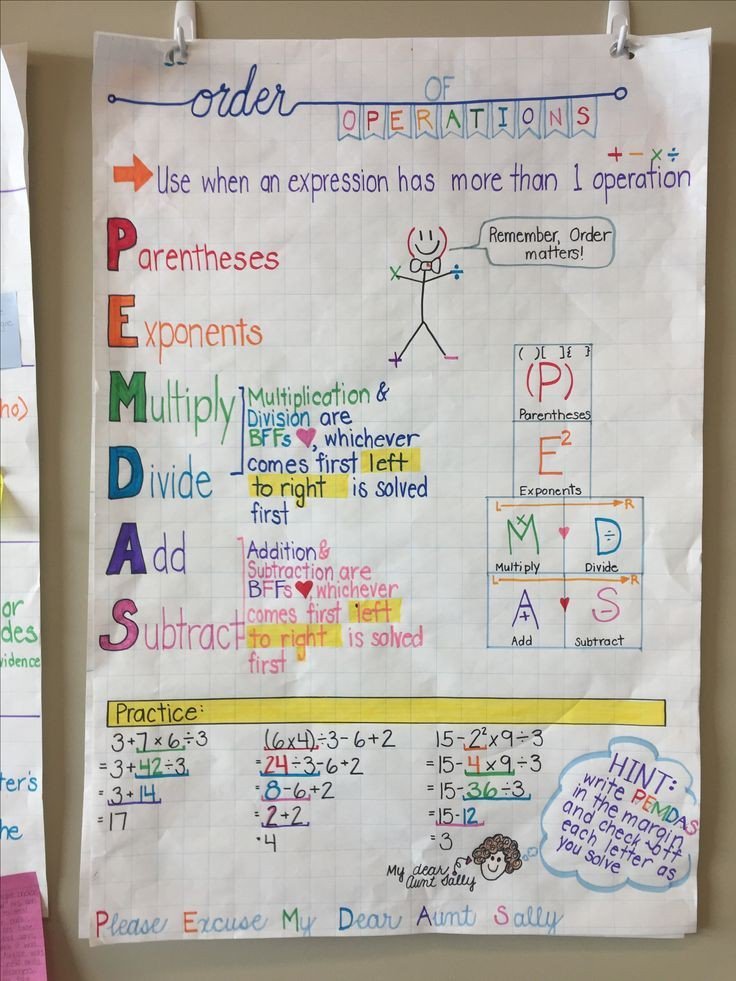 order OF
OPERATIONS
+ − × ÷
Use when an expression has more than 1 operation
Parentheses
Remember, Order
matters!
× ÷
+ −
Exponents
Multiply
Multiplication &
Division are
BFFs ♥, whichever
comes first left
to right is solved
first
Divide
Add
Addition &
Subtraction are
BFFs ♥, whichever
comes first left
to right is solved
first
Subtract
( )[ ]{ }
(P)
Parentheses
E²
Exponents
L R
M × ♥ D ÷
Multiply Divide
L R
A + ♥ S −
Add Subtract
Practice:
3+7×6÷3
=3+42÷3
=3+14
=17
(6×4)÷3-6+2
=24÷3-6+2
=8-6+2
=2+2
=4
15-2²×9÷3
=15-4×9÷3
=15-36÷3
=15-12
=3
HINT:
write PEMDAS
in the margin
and check-off
each letter as
you solve
My dear
Aunt Sally
Please Excuse My Dear Aunt Sally
ho)
or
des
vidence
ter's
he